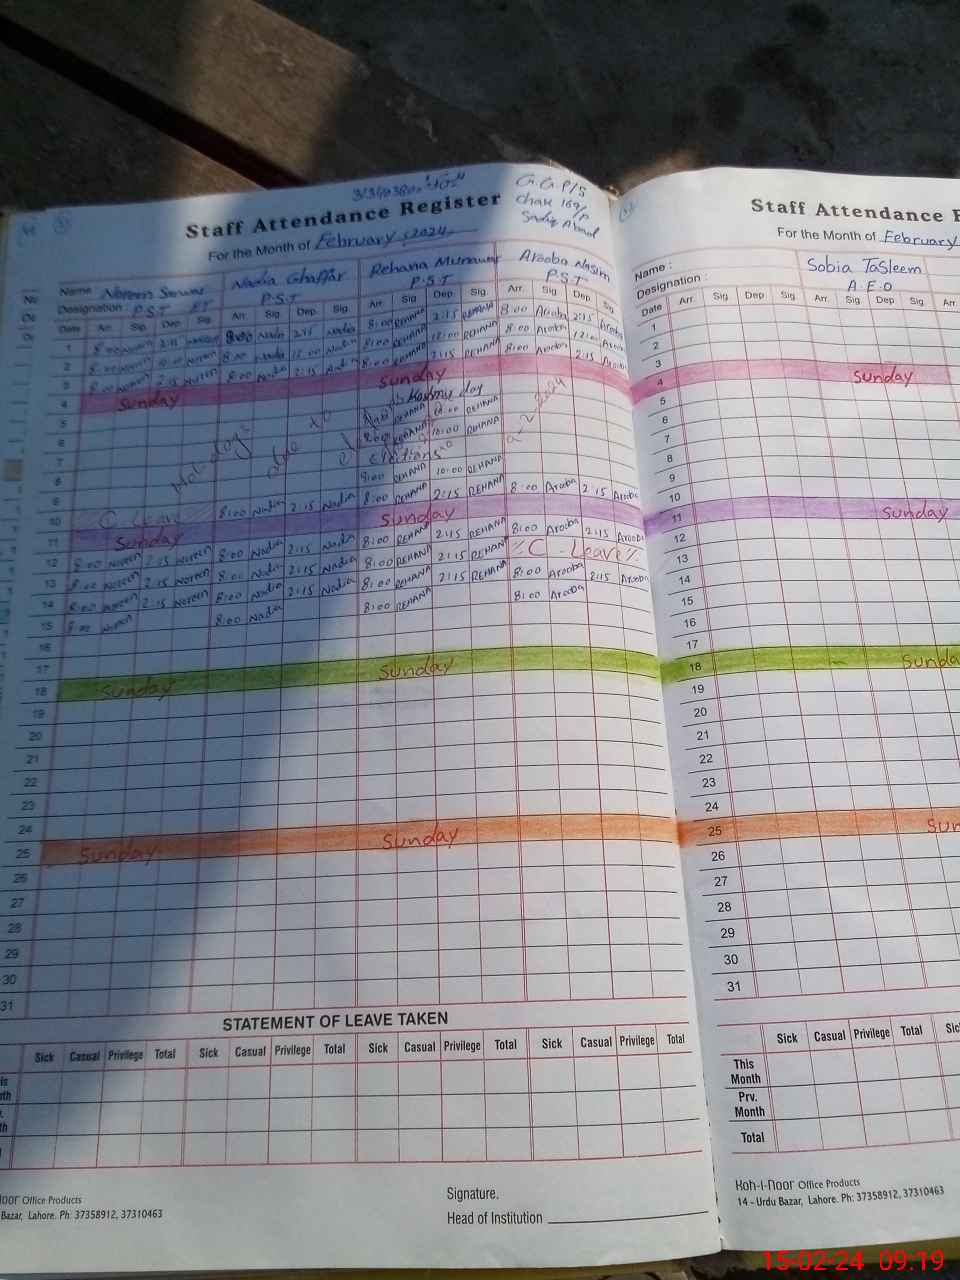 Staff Attendance Register
G.G.P/S
chak 169/P
For the Month of February, 2024
Name Noreen Sarwar Nadia Ghaffar Rehana Munawar Arooba Nasim
Designation P.S.T P.S.T P.S.T P.S.T
Date Arr. Sig. Dep. Sig. Arr. Sig. Dep. Sig. Arr. Sig. Dep. Sig. Arr. Sig. Dep. Sig.
1 8:00 Noreen 2:15 Noreen 8:00 Nadia 2:15 Nadia 8:00 REHANA 2:15 REHANA 8:00 Arooba 2:15 Arooba
2 8:00 Noreen 12:00 Noreen 8:00 Nadia 12:00 Nadia 8:00 REHANA 12:00 REHANA 8:00 Arooba 12:00 Arooba
3 8:00 Noreen 2:15 Noreen 8:00 Nadia 2:15 Nadia 8:00 REHANA 2:15 REHANA 8:00 Arooba 2:15 Arooba
4 Sunday Sunday
5 Kashmir day
6 REHANA REHANA
7 REHANA 10:00 REHANA
8 Elections
9 8:00 REHANA 10:00 REHANA
10 C leave 8:00 Nadia 2:15 Nadia 8:00 REHANA 2:15 REHANA 8:00 Arooba 2:15 Arooba
11 Sunday Sunday
12 8:00 Noreen 2:15 Noreen 8:00 Nadia 2:15 Nadia 8:00 REHANA 2:15 REHANA 8:00 Arooba 2:15 Arooba
13 8:00 Noreen 2:15 Noreen 8:00 Nadia 2:15 Nadia 8:00 REHANA 2:15 REHANA C - Leave
14 8:00 Noreen 2:15 Noreen 8:00 Nadia 2:15 Nadia 8:00 REHANA 2:15 REHANA 8:00 Arooba 2:15 Arooba
15 8:00 Noreen 8:00 Nadia 8:00 REHANA 8:00 Arooba
16
17
18 Sunday Sunday
19
20
21
22
23
24
25 Sunday Sunday
26
27
28
29
30
31
STATEMENT OF LEAVE TAKEN
Sick Casual Privilege Total Sick Casual Privilege Total Sick Casual Privilege Total Sick Casual Privilege Total
Signature.
Head of Institution
Office Products
Bazar, Lahore. Ph: 37358912, 37310463
Staff Attendance R
For the Month of February
Name : Sobia Tasleem
Designation : A.E.O
Date Arr. Sig. Dep. Sig. Arr. Sig. Dep. Sig.
1
2
3
4 Sunday
5
6
7
8
9
10
11 Sunday
12
13
14
15
16
17
18 Sunda
19
20
21
22
23
24
25 Sun
26
27
28
29
30
31
Sick Casual Privilege Total Sic
This Month
Prv. Month
Total
Koh-i-noor Office Products
14 - Urdu Bazar, Lahore. Ph: 37358912, 37310463
15-02-24 09:19